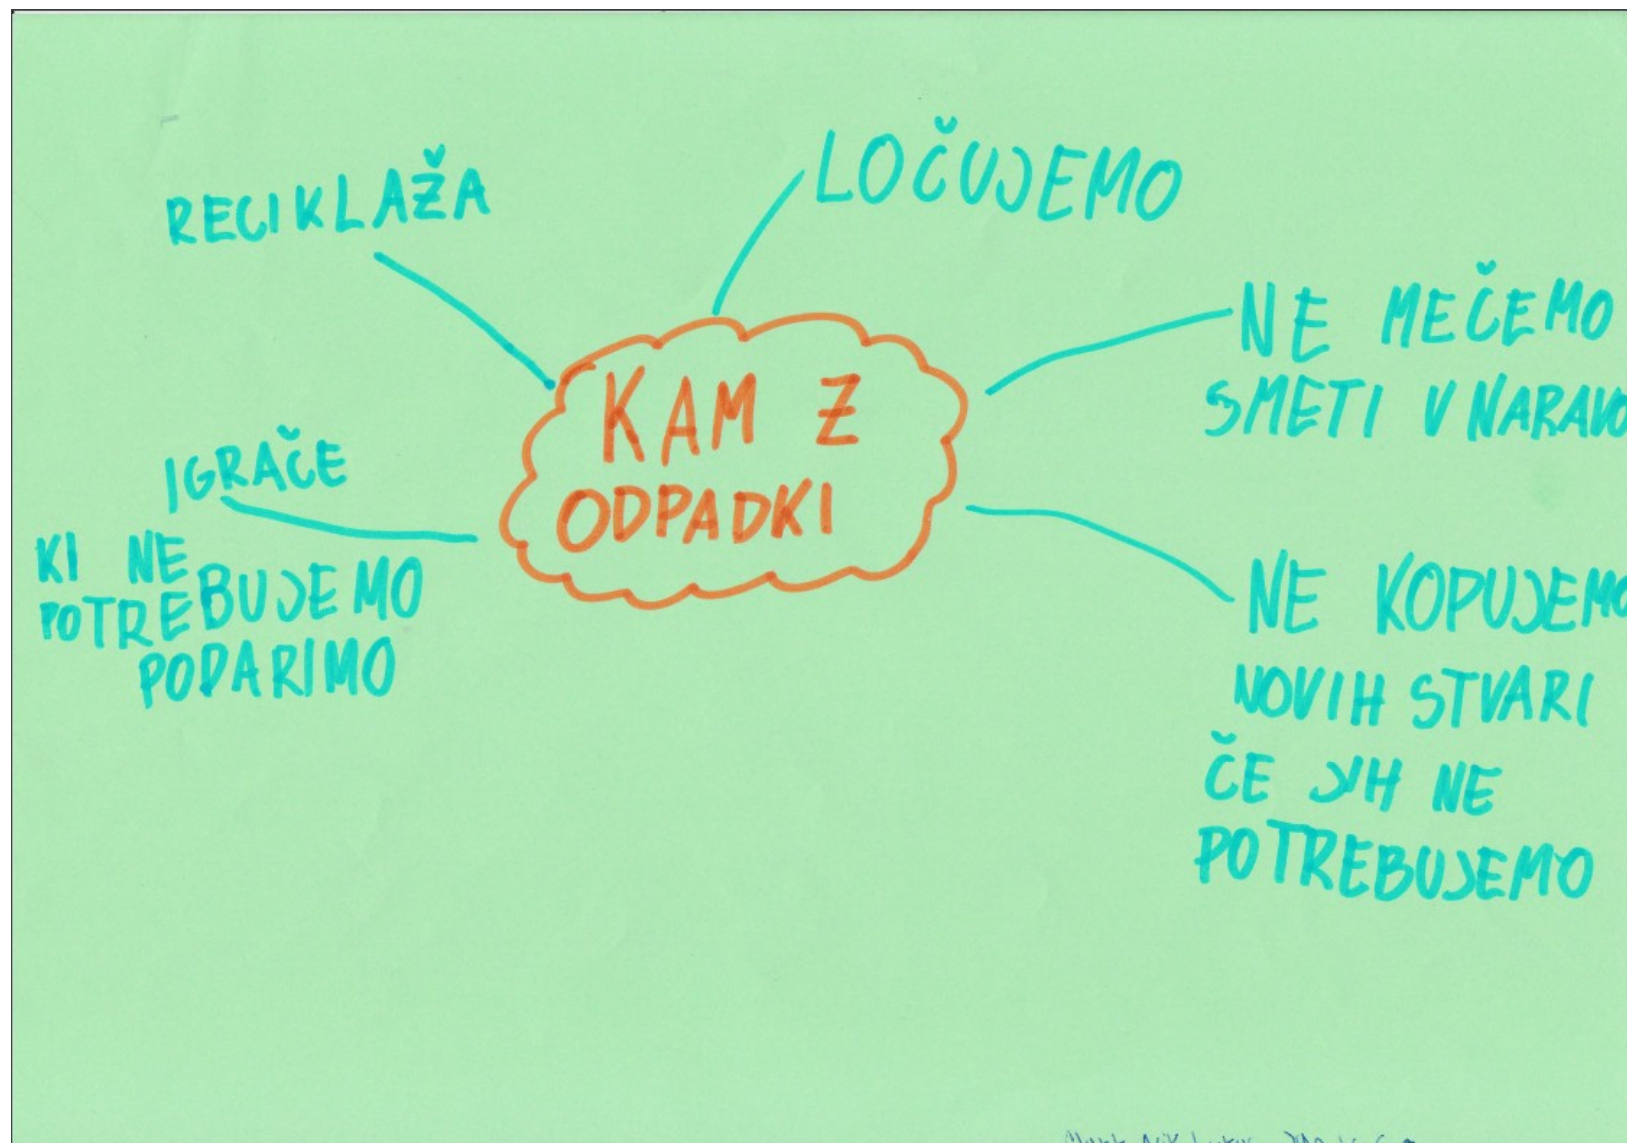 KAM Z
ODPADKI
RECIKLAŽA
LOČUJEMO
NE MEČEMO
SMETI V NARAVO
NE KOPUJEMO
NOVIH STVARI
ČE JIH NE
POTREBUJEMO
IGRAČE
KI NE
POTREBUJEMO
PODARIMO